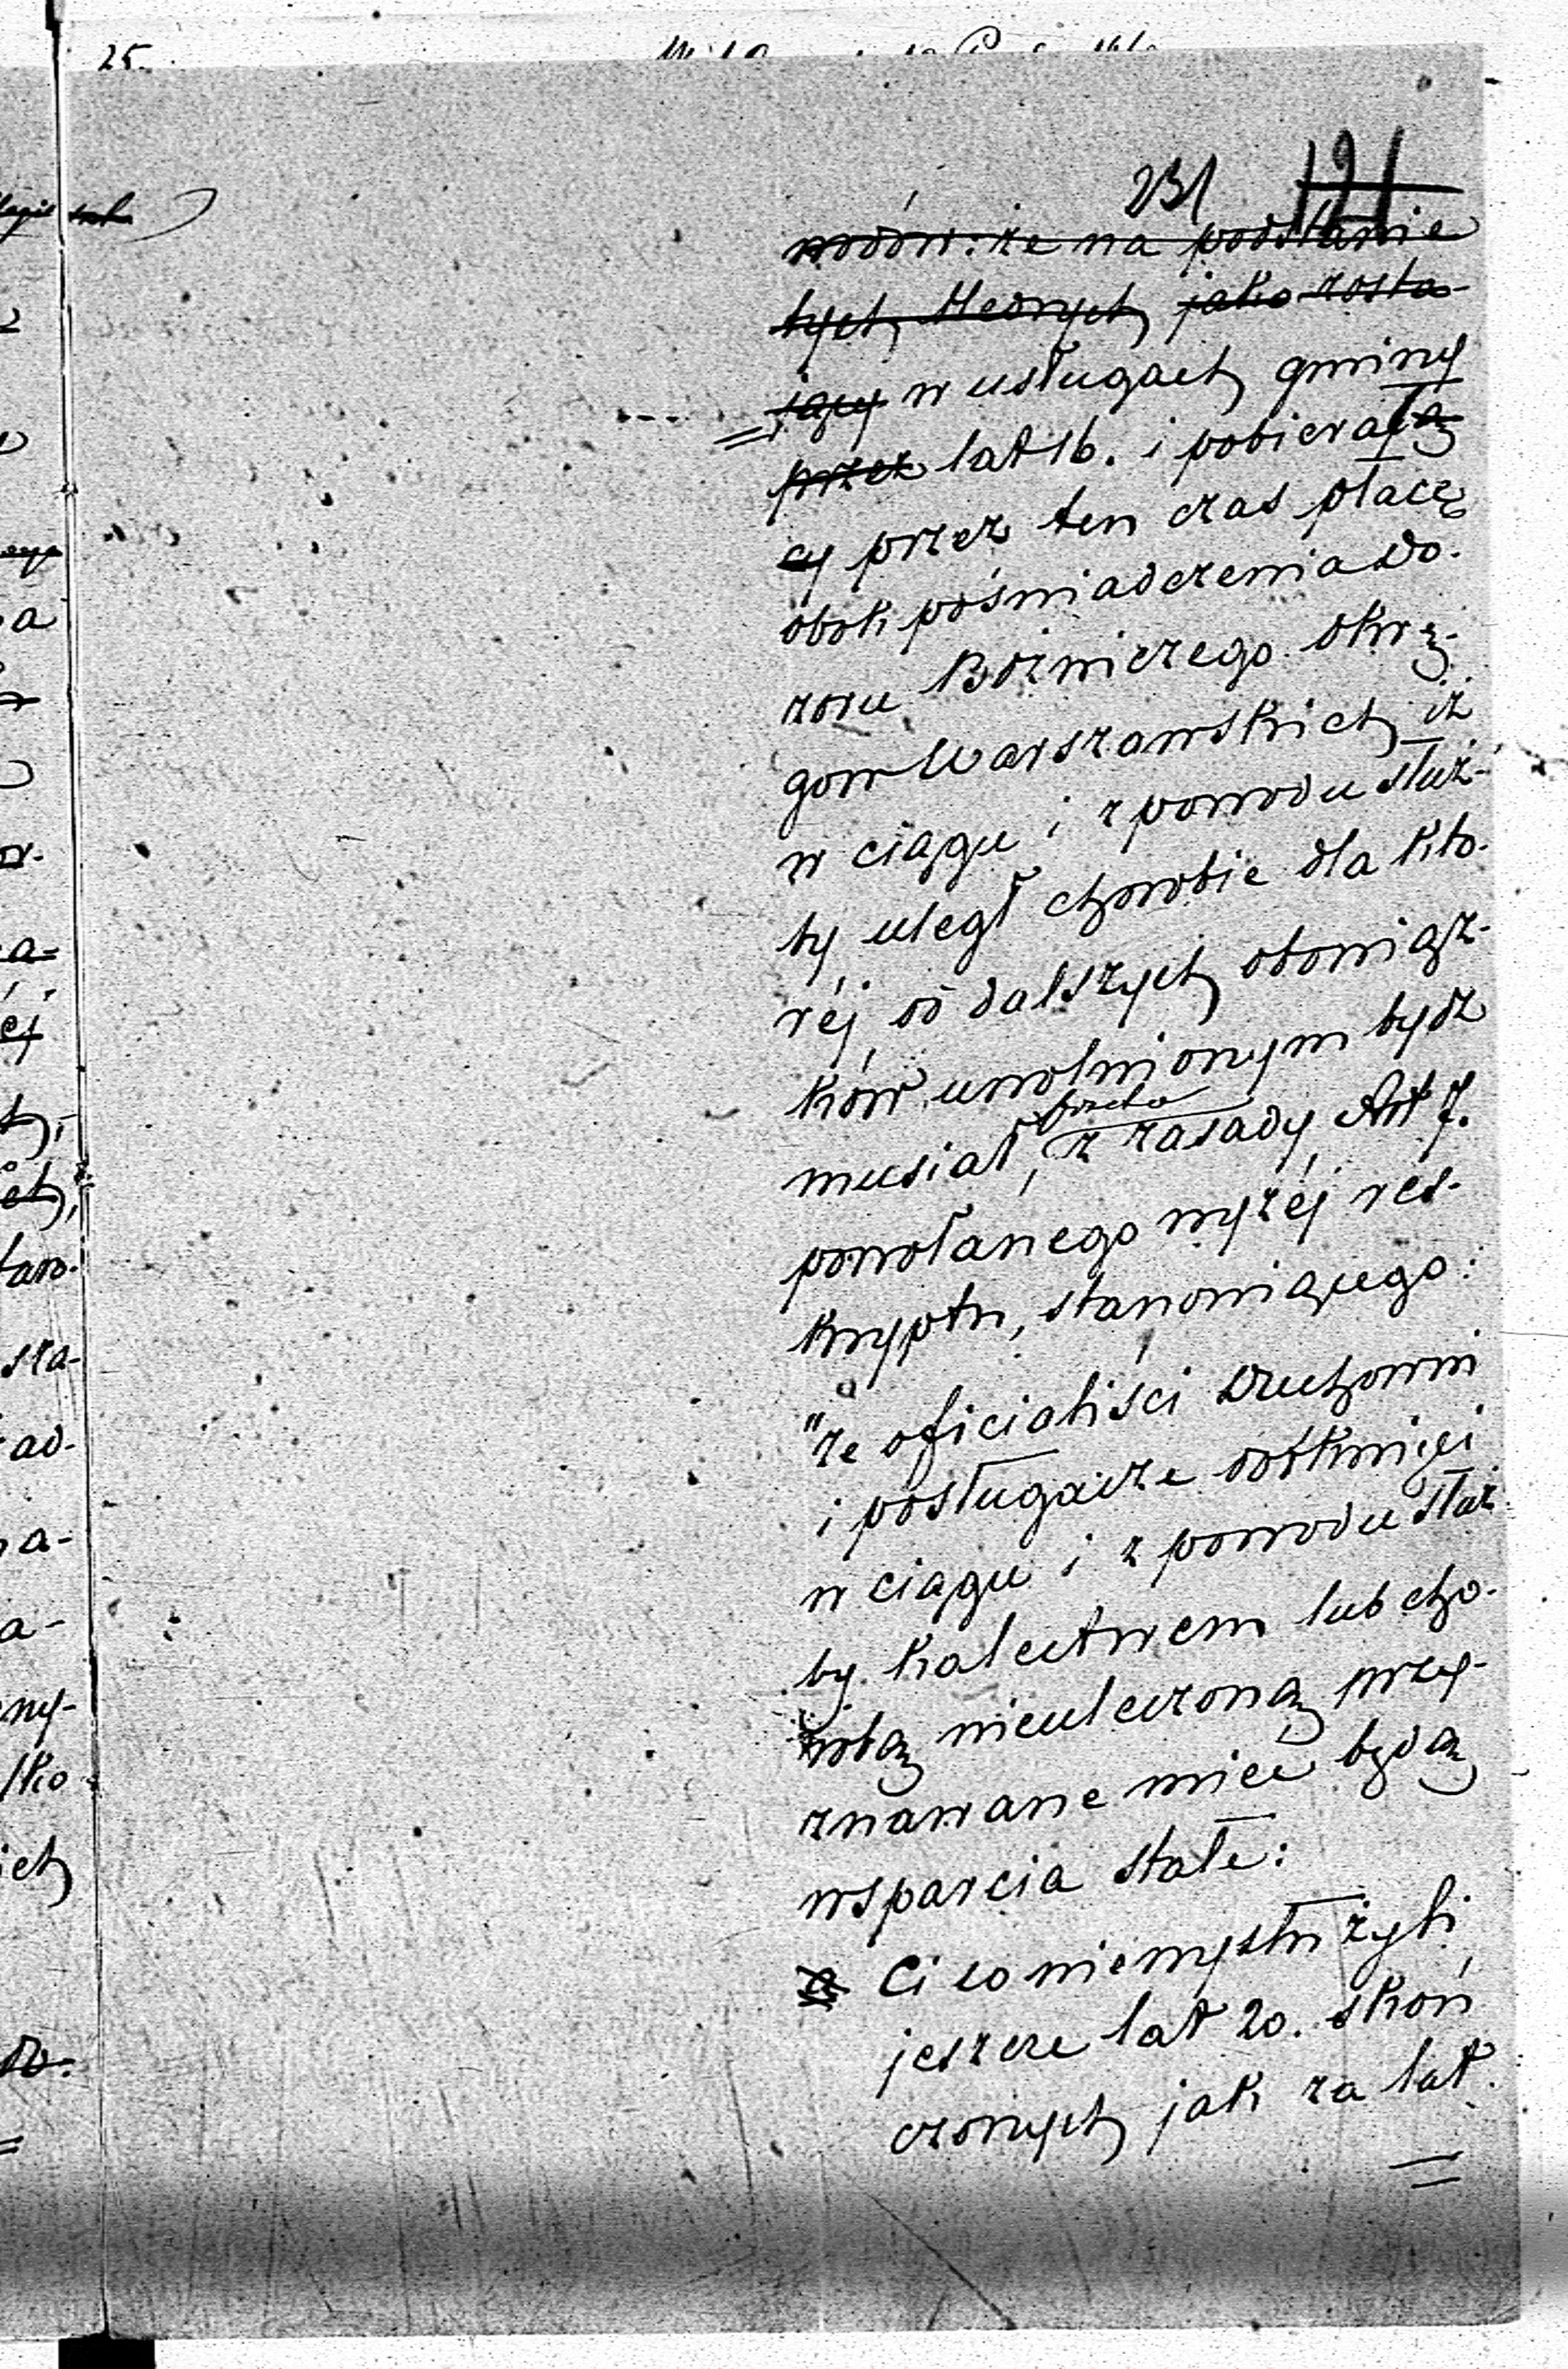 25.
231 121
wodów: że na podstawie
tych, któdrych, jako zosta-
jący w usługach gminy
przez lat 16. i pobierają
cy przez ten czas płacę
obok poświadczenia Do-
zoru Bóżniczego Okrę-
gow Warszawskich, iż
w ciągu i z powodu służ-
by uległ chorobie dla któ-
réj od dalszych obowiąz-
ków uwolnionym bydź
musiał, z zasady Art 7.
powołanego wyżéj res-
kryptu, stanowiącego:
"że oficialiści Duchowni
i posługacze dotknięci
w ciągu i z powodu służ
by kalectwem lub cho-
robą nieuleczoną przy-
znawane mieć będą
wsparcia stałe:
Ci co niewysłużyli
jeszcze lat 20. skoń
czonych, jak za lat